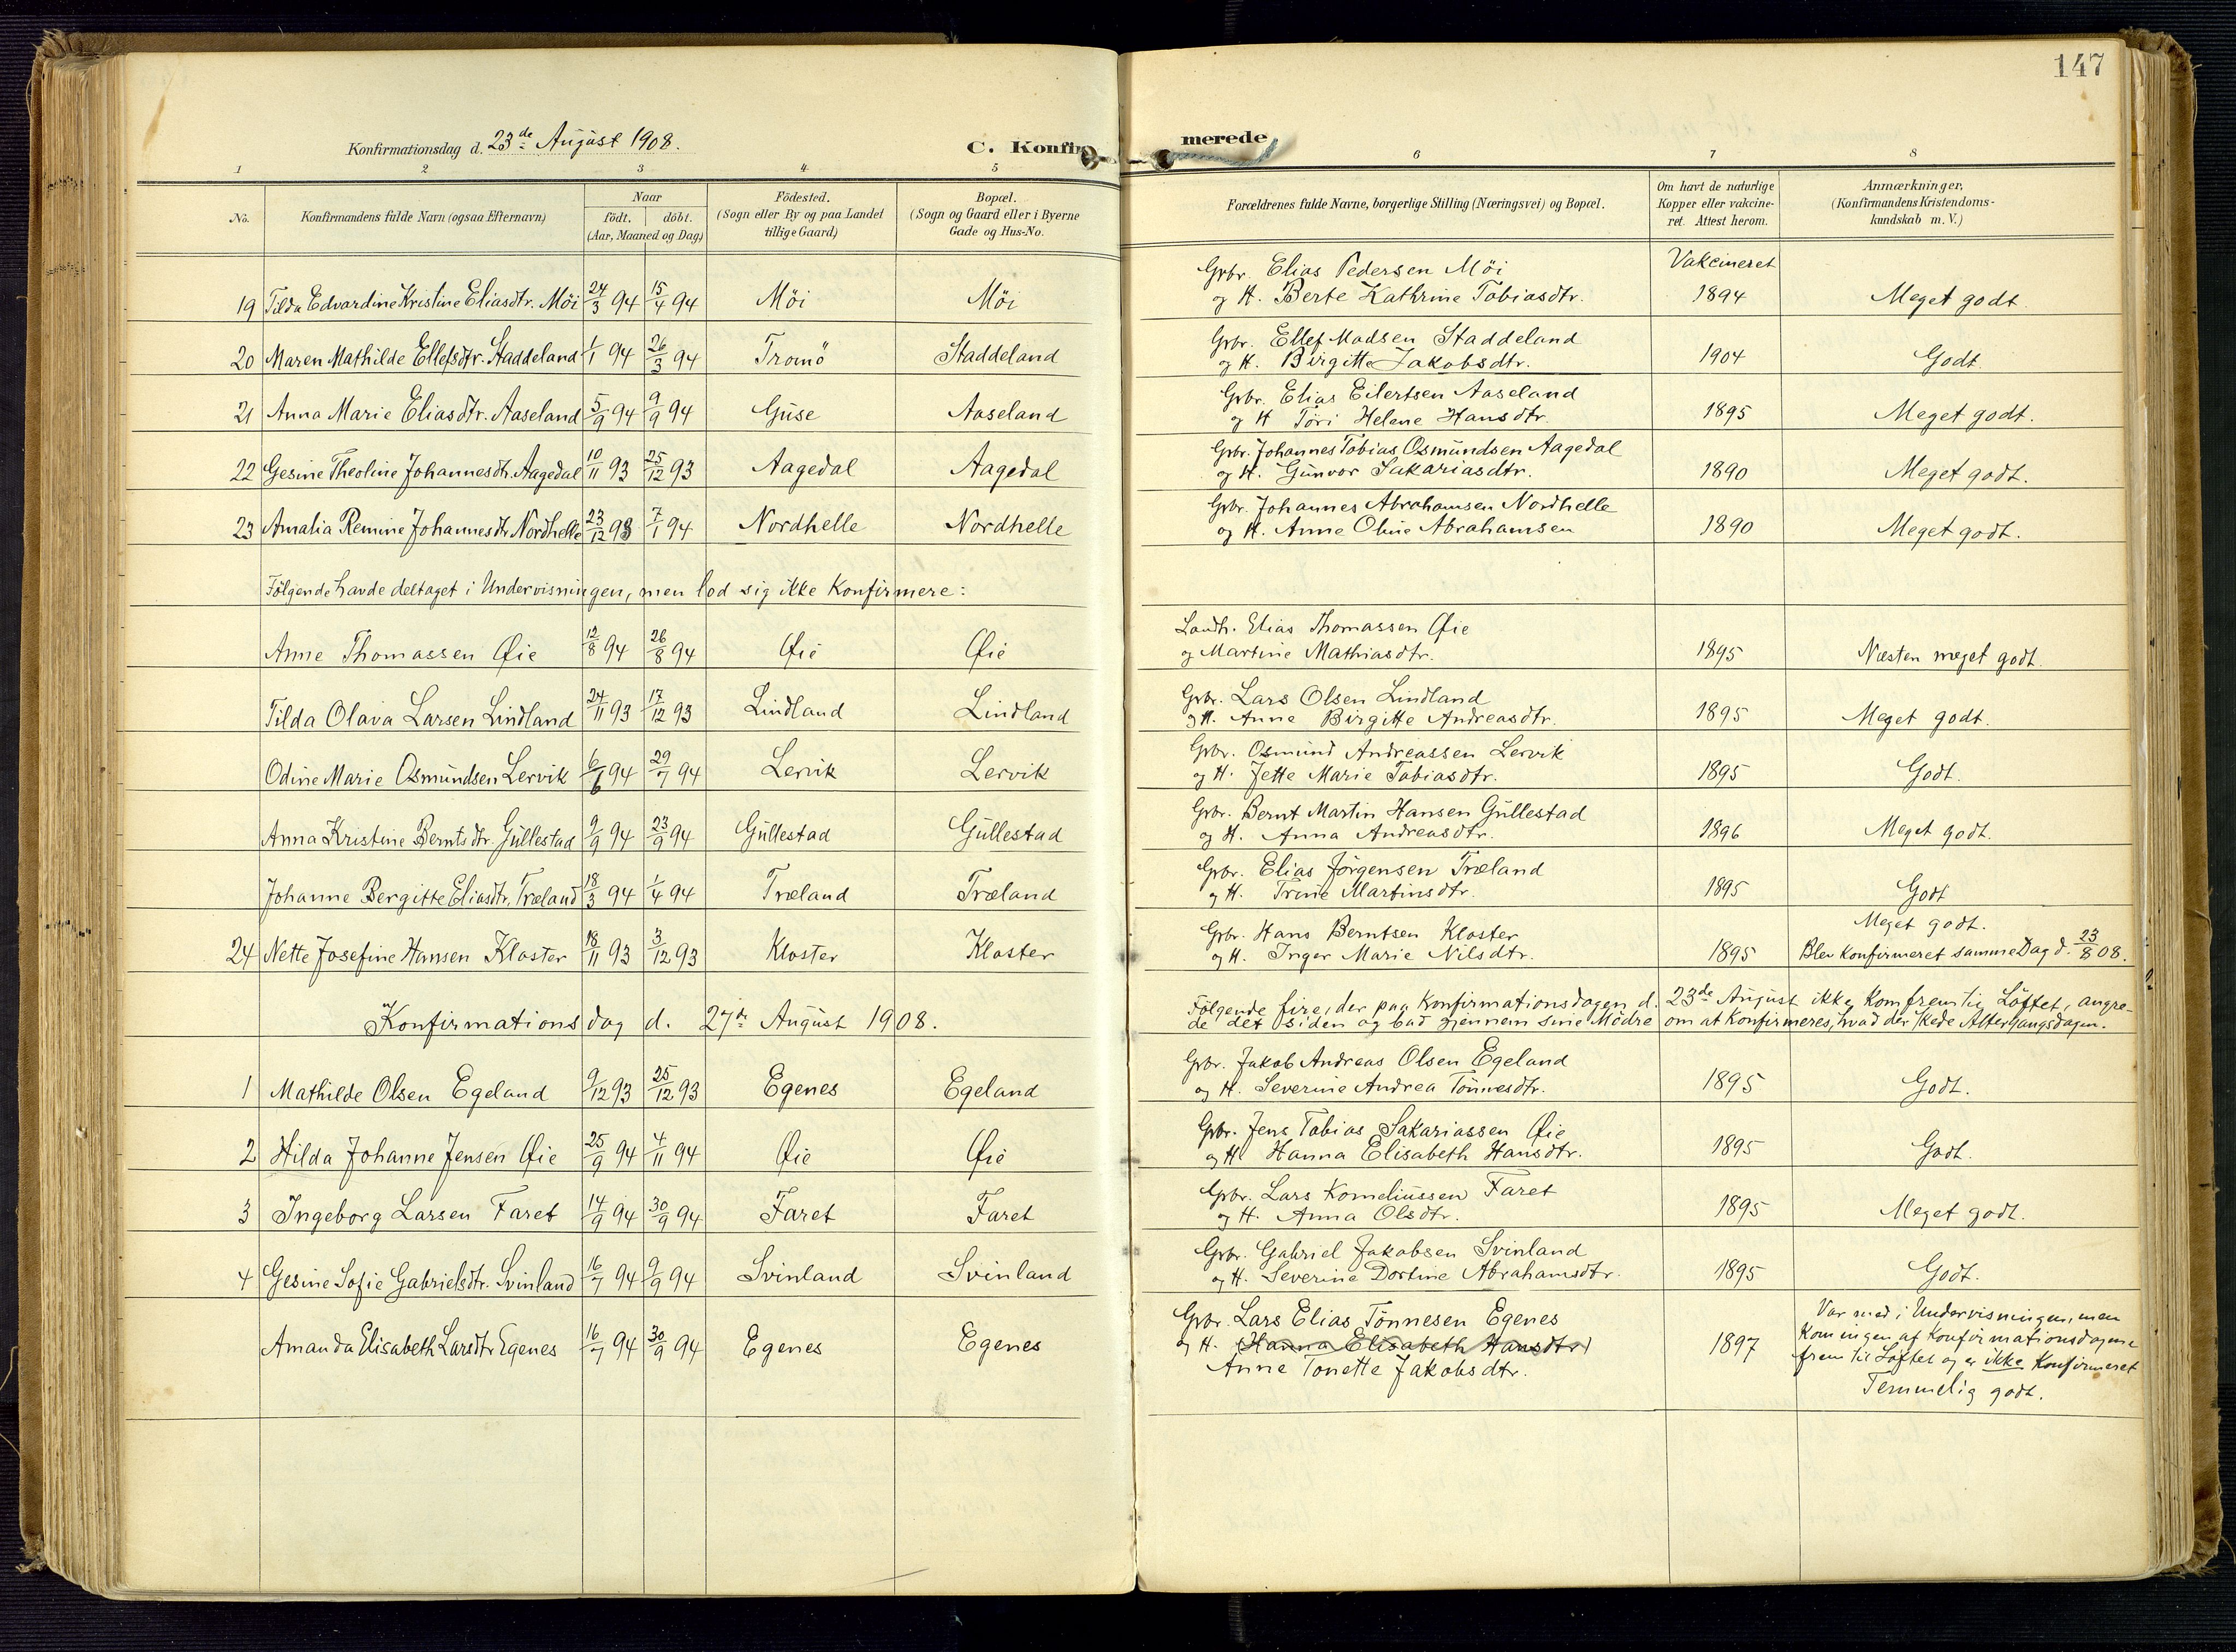 147
Konfirmationsdag d. 23de August 1908.
C. Konfir
merede
1 2 3 4 5 6 7 8
No.
Konfirmandens fulde Navn (ogsaa Efternavn)
Naar
födt. döbt.
(Aar, Maaned og Dag)
Födested.
(Sogn eller By og paa Landet
tillige Gaard)
Bopæl.
(Sogn og Gaard eller i Byerne
Gade og Hus-No.
Forældrenes fulde Navne, borgerlige Stilling (Næringsvei) og Bopæl.
Om havt de naturlige
Kopper eller vakcine-
ret. Attest herom.
Anmærkninger.
(Konfirmandens Kristendoms-
kundskab m. V.)
19 Tilda Edvardine Kristine Eliasdtr. Möi 24/3 94 15/4 94 Möi Möi
Gbr. Elias Pedersen Möi
og H. Berte Kathrine Tobiasdtr.
Vakcineret
1894 Meget godt
20 Maren Mathilde Ellefsdtr. Staddeland 1/1 94 26/3 94 Tromö Staddeland
Gbr. Ellef Madsen Staddeland
og H. Birgitte Jakobsdtr.
1904 Godt.
21 Anna Marie Eliasdtr. Aaseland 5/9 94 9/9 94 Guse Aaseland
Gbr. Elias Eilertsen Aaseland
og H Töri Helene Hansdtr.
1895 Meget godt.
22 Gesine Theoline Johannesdtr. Aagedal 10/11 93 25/12 93 Aagedal Aagedal
Gbr. Johannes Tobias Osmundsen Aagedal
og H. Gunvor Sakariasdtr.
1890 Meget godt.
23 Amalia Remine Johannesdtr Nordhelle 23/12 93 7/1 94 Nordhelle Nordhelle
Gbr. Johannes Abrahamsen Nordhelle
og H. Anne Oline Abrahamsen
1890 Meget godt.
Fölgende havde deltaget i Undervisningen, men lod sig ikke Konfirmere:
Anne Thomassen Øie 12/8 94 26/8 94 Øie Øie
Landh. Elias Thomassen Øie
og Martine Mathiasdtr.
1895 Næsten meget godt.
Tilda Olava Larsen Lindland 24/11 93 17/12 93 Lindland Lindland
Gbr. Lars Olsen Lindland
og H. Anne Birgitte Andreasdtr.
1895 Meget godt.
Odine Marie Osmundsen Lervik 6/6 94 29/7 94 Lervik Lervik
Gbr. Osmund Andreassen Lervik
og H. Jette Marie Tobiasdtr.
1895 Godt.
Anna Kristine Berntsdtr. Gullestad 9/9 94 23/9 94 Gullestad Gullestad
Gbr. Bernt Martin Hansen Gullestad
og H. Anna Andreasdtr.
1896 Meget godt.
Johanne Bergitte Eliasdtr. Træland 18/3 94 1/4 94 Træland Træland
Gbr. Elias Jörgensen Træland
og H. Trine Martinsdtr.
1895 Godt
24 Nette Josefine Hansen Kloster 18/11 93 3/12 93 Kloster Kloster
Gbr. Hans Berntsen Kloster
og H. Inger Marie Nilsdtr.
1895
Meget godt.
Blev Konfirmeret samme Dag d. 23/8 08.
Konfirmationsdag d. 27de August 1908.
Fölgende fire, der paa Konfirmationsdagen d. 23de August ikke kom frem til Löftet, angre-
de det siden og bad gjennem sine Mödre om at Konfirmeres, hvad der skede Altergangsdagen.
1 Mathilde Olsen Egeland 9/12 93 25/12 93 Egenes Egeland
Gbr. Jakob Andreas Olsen Egeland
og H. Severine Andrea Tönnesdtr.
1895 Godt.
2 Hilda Johanne Jensen Øie 25/9 94 4/11 94 Øie Øie
Gbr. Jens Tobias Sakariassen Øie
og H Hanna Elisabeth Hansdtr.
1895 Godt.
3 Ingeborg Larsen Faret 14/9 94 30/9 94 Faret Faret
Gbr. Lars Korneliussen Faret
og H. Anna Olsdtr.
1895 Meget godt.
4 Gesine Sofie Gabrielsdtr. Svinland 16/7 94 9/9 94 Svinland Svinland
Gbr. Gabriel Jakobsen Svinland
og H. Severine Dortine Abrahamsdtr.
1895 Godt.
Amanda Elisabeth Larsdtr Egenes 16/7 94 30/9 94 Egenes Egenes
Gbr. Lars Elias Tönnesen Egenes
og H. (Hanna Elisabeth Hansdtr)
Anne Tonette Jakobsdtr.
1897
Var med i Undervisningen, men
Kom ingen af Konfirmationsdagene
frem til Löftet og er ikke Konfirmeret
Temmelig godt.